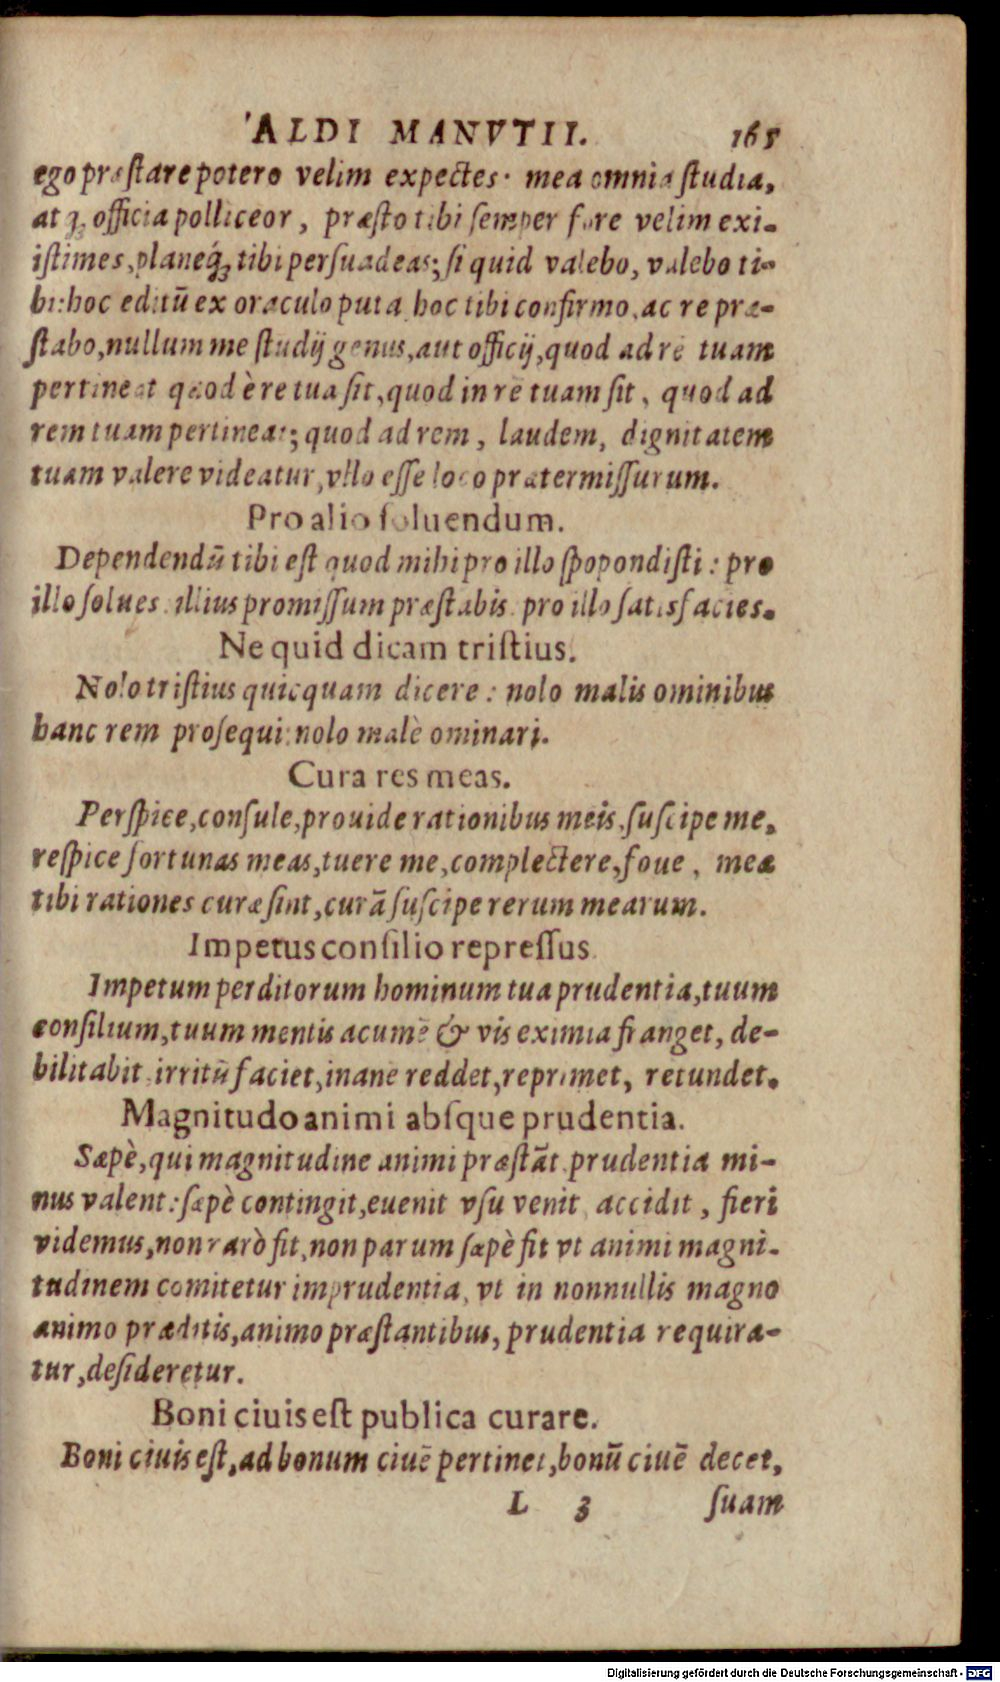 ALDI MANVTII. 165
ego præstare potero velim expectes. mea omnia studia,
atq; officia polliceor, præsto tibi semper fore velim exi-
istimes, planeq́; tibi persuadeas; si quid valebo, valebo ti-
bi: hoc editū ex oraculo puta hoc tibi confirmo, ac re præ-
stabo, nullum me studij genus, aut officij, quod ad rē tuam
pertineat quod è re tua sit, quod in rē tuam sit, quod ad
rem tuam pertineat; quod ad rem, laudem, dignitatem
tuam valere videatur, vllo esse loco prætermissurum.
Pro alio soluendum.
Dependendū tibi est quod mihi pro illo spopondisti: pro
illo solues. illius promissum præstabis. pro illo satisfacies.
Ne quid dicam tristius.
Nolo tristius quicquam dicere: nolo malis ominibus
hanc rem prosequi: nolo malè ominari.
Cura res meas.
Perspice, consule, prouide rationibus meis, suscipe me,
respice fortunas meas, tuere me, complectere, foue, meæ
tibi rationes curæ sint, curā suscipe rerum mearum.
Impetus consilio repressus.
Impetum perditorum hominum tua prudentia, tuum
consilium, tuum mentis acumē & vis eximia franget, de-
bilitabit, irritū faciet, inane reddet, reprimet, retundet.
Magnitudo animi absque prudentia.
Sæpè, qui magnitudine animi præstāt, prudentia mi-
nus valent: sæpè contingit, euenit vsu venit, accidit, fieri
videmus, non rarò fit, non parum sæpè fit vt animi magni-
tudinem comitetur imprudentia, vt in nonnullis magno
animo præditis, animo præstantibus, prudentia requira-
tur, desideretur.
Boni ciuis est publica curare.
Boni ciuis est, ad bonum ciuē pertinet, bonū ciuē decet,
L 3 suam
Digitalisierung gefördert durch die Deutsche Forschungsgemeinschaft - DFG